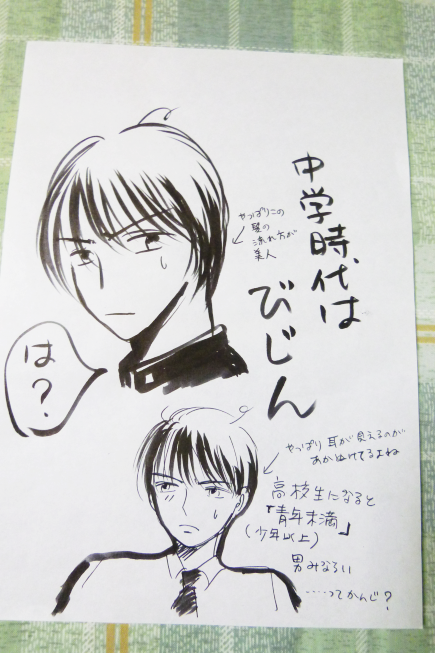 中学時代は
びじん
やっぱりこの
髪の
流れ方が
美人
は?
やっぱり耳が見えるのが
あかぬけてるよね
高校生になると
「青年未満」
(少年以上)
男みならい
……ってかんじ?